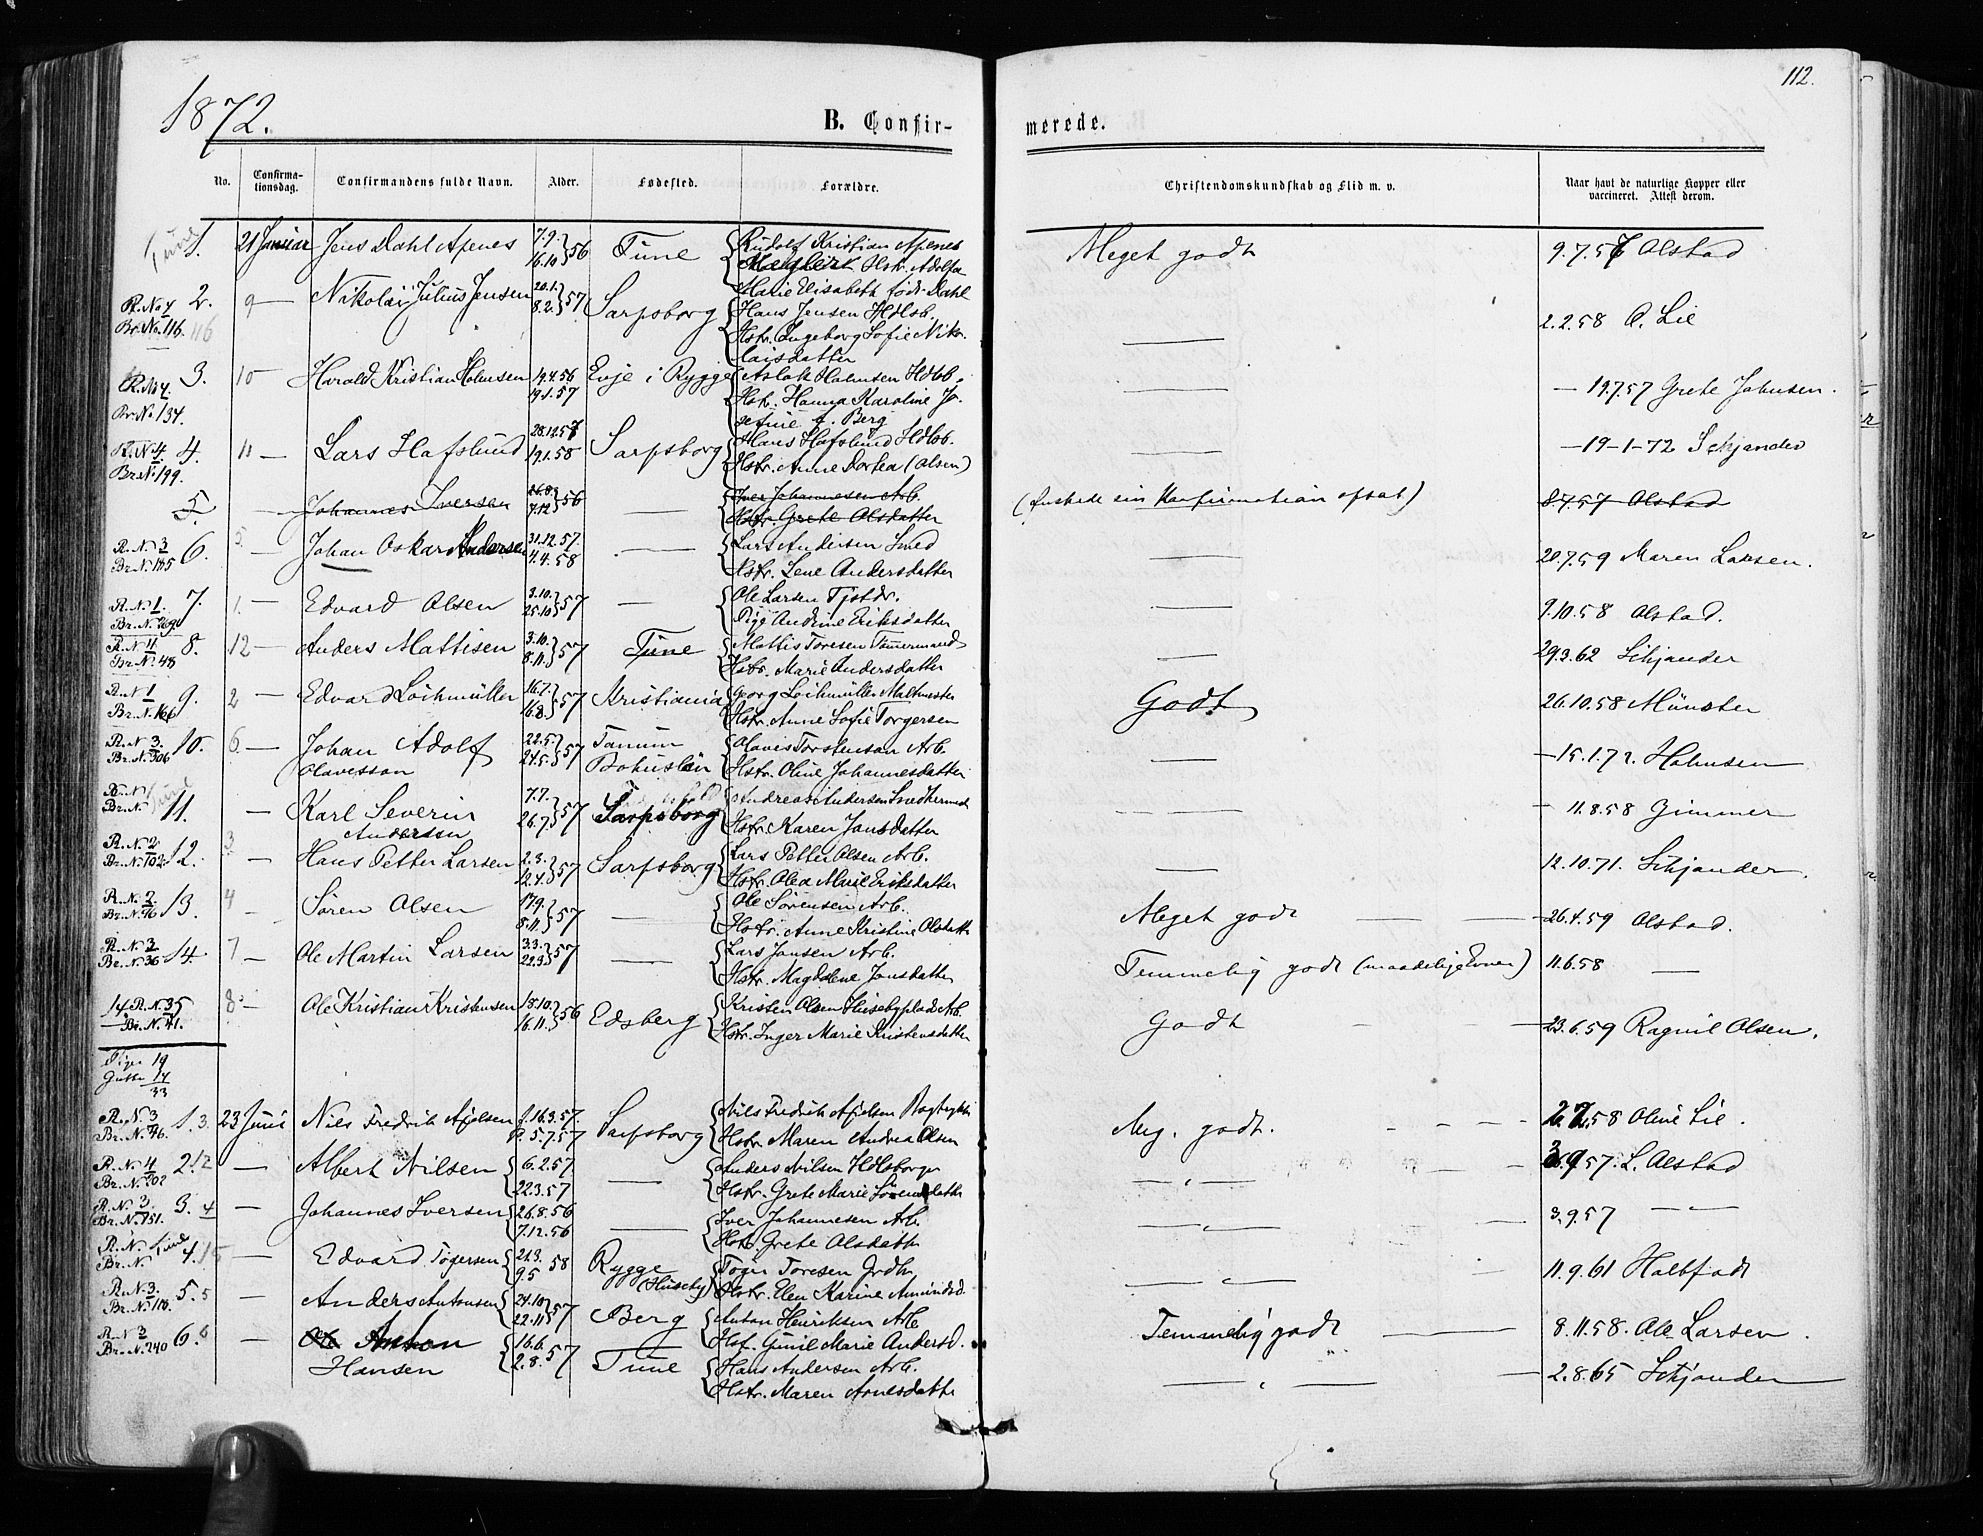 1872.
B. Confir-
merede.
112.
No.
Confirma-
tionsdag.
Confirmandens fulde Navn.
Alder.
Fødested.
Forældre.
Christendomskundskab og Flid m. v.
Naar havt de naturlige Kopper eller
vaccineret. Attest derom.
Tune 1. 21 Januar Jens Dahl Apenes 7.9. 16.10 } 56 Tune { Rudolf Kristian Apenes
Hstr. Adolfa
Marie Elisabeth født Dahl
Meget godt 9.7.57 Olstad
R. No 4 Br. No. 116. 2. 9 — Nikolai Julius Jensen 20.1. 8.2. } 57 Sarpsborg { Hans Jensen Hdlsb.
Hstr. Ingeborg Sofie Niko-
laisdatter
— 2.2.58 O. Lie
R. No 4. Br. No. 134. 3. 10 — Harald Kristian Holmsen 19.4.56 19.1.57 Evje i Rygge { Aslak Holmsen Hdlsb.
Hstr. Hanna Karoline Jo-
sefine f. Berg
— — 19.7.57 Grete Johnsen.
R. No 4. Br. No 199. 4. 11 — Lars Hafslund 28.12.57 19.1.58 Sarpsborg { Hans Hafslund Hdlsb.
Hstr. Anne Dortea (Olsen)
— — 19-1-72 Schjander
5. — Johannes Iversen 26.8. 7.12 } 56 — { Iver Johannesen Arb.
Hstr. Grete Olsdatter
(ønskede sin Konfirmation opsat) 8.7.57 Olstad
R. N. 3 Br. N. 185 6. 5. — Johan Oskar Andersen 31.12.57. 4.4.58 — { Lars Andersen Smed
Hstr. Lene Andersdatter
— 20.7.59 Maren Larsen.
R. N. 1. Br. N. 269 7. 1. — Edvard Olsen 3.10. 25.10 } 57 — { Ole Larsen Tjstdr.
Pige Andrine Eriksdatter
— 9.10.58 Olstad.
R. N. 4. Br. N. 48 8. 12 — Anders Mattisen 3.10. 8.11. } 57 Tune { Mattis Toresen Tømmermand
Hstr. Marie Andersdatter
— 29.3.62 Schjander
R. N. 1 Br. N. 166 9. 2 — Edvard Loihmüller 16.7. 16.8. } 57 Kristiania { Georg Loihmüller Maltmester
Hstr. Anne Sofie Torgersen
Godt 26.10.58 Münster
R. N. 3. Br. N. 306 10. 6. — Johan Adolf
Olavesson 22.5. 24.5. } 57 Tanum
Bohuslän { Olaves Torstensson Arb.
Hstr. Oline Johannesdatter
— — 15.1.72. Holmsen
Br. N. 11. — Karl Severin
Andersen 7.7. 26.7. } 57 Sarpsborg { Andreas Andersen Snedkermed
Hstr. Karen Jansdatter
— — 11.8.58 Gimmer
R. N. 2 Br. N. 102. 12. 3. — Hans Petter Larsen 2.3. 12.4. } 57 Sarpsborg { Lars Petter Olsen Arb.
Hstr. Olea Marie Eriksdatter
— 12.10.71. Schjander.
R. N. 2. Br. N. 96 13. 4 — Søren Olsen 17.9. 8.11. } 57 — { Ole Sørensen Arb.
Hstr. Anne Kristine Olsdatter
Meget godt — — 26.4.59 Olstad.
R. N. 3 Br. N. 36 14. 7 — Ole Martin Larsen 3.3. 22.3 } 57 — { Lars Jansen Arb.
Hstr. Magdalene Jansdatter
Temmelig godt (maadelige Evner) 11.6.58 —
14. R. N. 3 Br. N. 41. 5 8 — Ole Kristian Kristensen 18.10. 16.11. } 56 Edsberg { Kristen Olsen Husebyplads Arb.
Hstr. Inger Marie Kristensdatter
Godt — 23.6.59 Ragnil Olsen.
Piger 19
Gutter 14
33
R. N. 3 Br. N. 46. 1. 3. 23 Juni Nils Fredrik Mjelsen f. 16.3.57. d. 5.7.57 Sarpsborg { Nils Fredrik Mjelsen Bogtrykker
Hstr. Maren Andrea Olsen
Meg. godt. - - - - 2.2.58 Oline Lie.
R. N. 4 Br. N. 202 2. 12 — Albert Nilsen { 6.2.57. 22.3.57 — { Anders Nilsen Hdlsborger
Hstr. Grete Marie Sörensdatter
— " — 3.9.57. L. Olstad
R. N. 3. Br. N. 151. 3. 4 — Johannes Iversen { 26.8.56 7.12.56 — { Iver Johannesen Arb.
Hstr. Grete Olsdatter
— " — 3.9.57 — " —
R. N. Tune Br. N. 4. 15 — Edvard Tøgersen { 21.3. 9.5 } 58 Rygge
(Huseby) { Tøger Toresen Jrdbr.
Hstr. Elen Karine Amundsd.
— " — 11.9.61 Halffadt
R. N. 3. Br. N. 118. 5. 5 — Anders Antonsen { 24.10 22.11 } 57 Berg { Anton Henriksen Arb
Hstr. Gunil Marie Andersd.
Temmelig godt — 8.11.58. Ole Larsen.
R. N. 3 Br. N. 240 6. 6 — Ole Anton
Hansen { 16.6. 2.8. } 57 Tune { Hans Andersen Arb.
Hstr. Maren Arnesdatter
— " — 2.8.65 Schjander